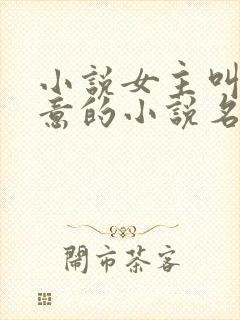 小說女主叫
意的小說名
鬧市茶客